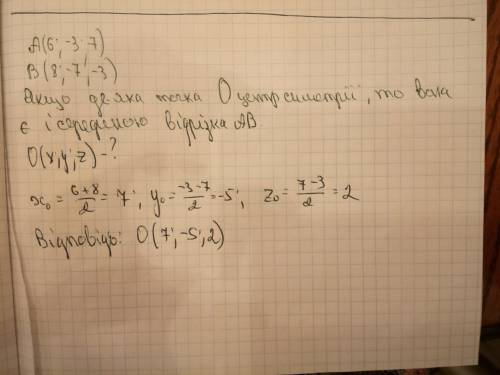 A(6; -3; 7)
B(8; -7; -3)
Якщо деяка точка O центр симетрії, то вона
є і серединою відрізка AB.
O(x; y; z) - ?
x₀ = (6+8)/2 = 7; y₀ = (-3-7)/2 = -5; z₀ = (7-3)/2 = 2
Відповідь: O(7; -5; 2)